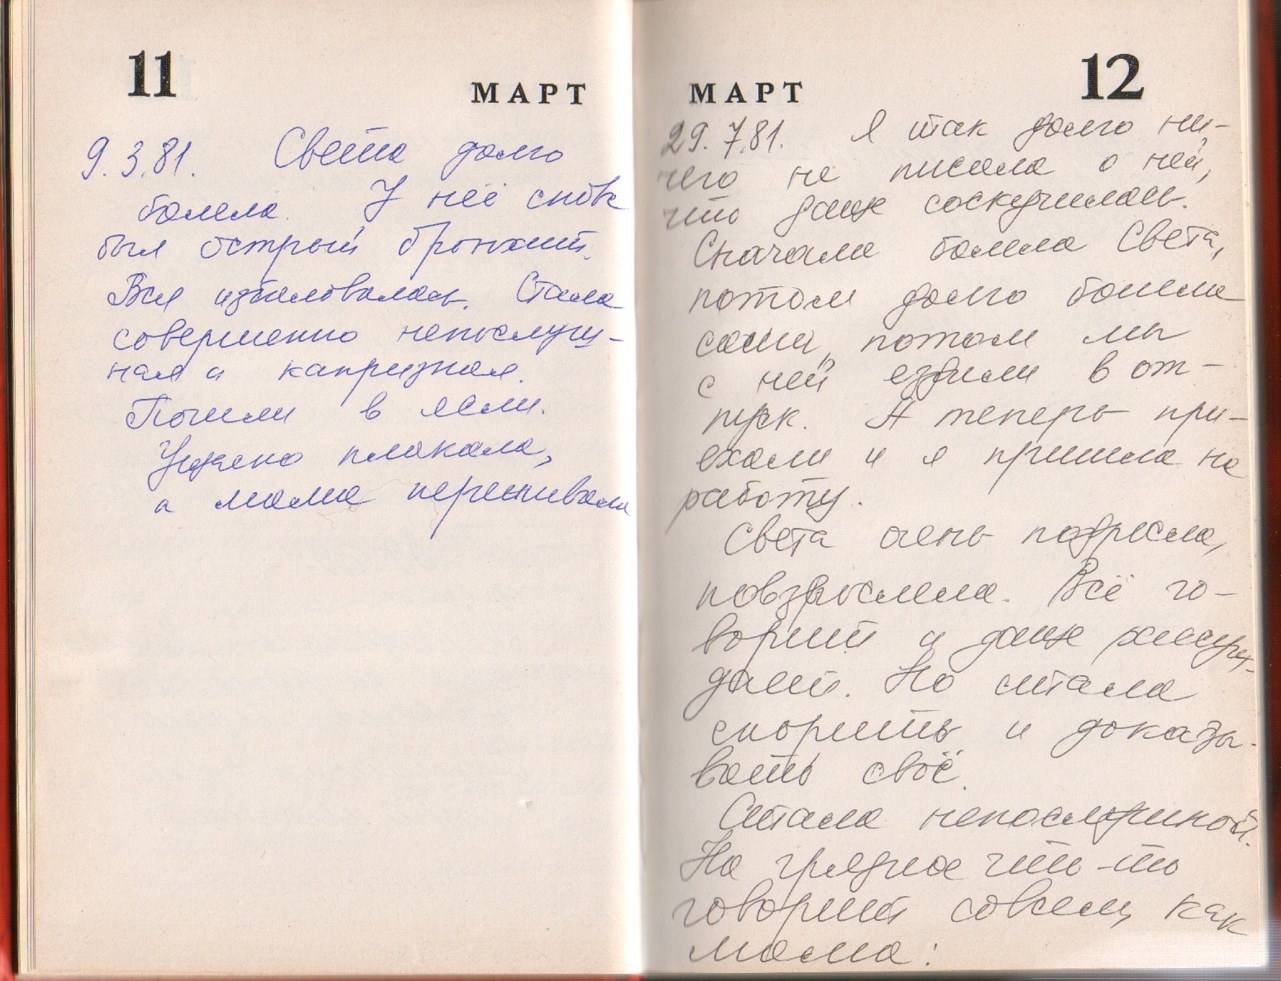 11
МАРТ
9.3.81. Света долго
болела. У неё снова
был острый бронхит.
Вся избаловалась. Стала
совершенно непослуш-
ная и капризная.
Пошли в ясли.
Ужасно плакала,
а мама переживала
МАРТ
12
29.7.81. Я так долго ни-
чего не писала о ней,
что даже соскучилась.
Сначала болела Света,
потом долго болела
сама, потом мы
с ней ездили в от-
пуск. А теперь при-
ехали и я пришла на
работу.
Света очень подросла,
повзрослела. Всё го-
ворит и даже рассуж-
дает. Но стала
спорить и доказы-
вать своё.
Стала непослушной.
На грязное что-то
говорит совсем, как
мама: